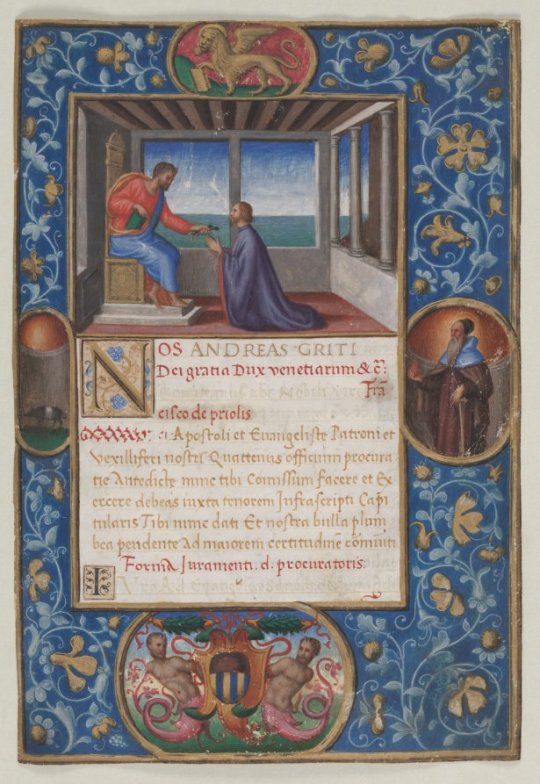 NOS ANDREAS GRITI
Dei gratia Dux venetiarum & c̃:
Frã
cisco de priolis
ci Apostoli et Euangeliste Patroni et
Vexilliferi nostri Quattenus officium procura
tie Antedicte nunc tibi Comissum facere et Ex
ercere debeas iuxta tenorem Infrascripti Capi
tularis Tibi nunc dati Et nostra bulla plum
bea pendente Ad maiorem certitudinẽ
Forma Juramenti. d. procuratoris.